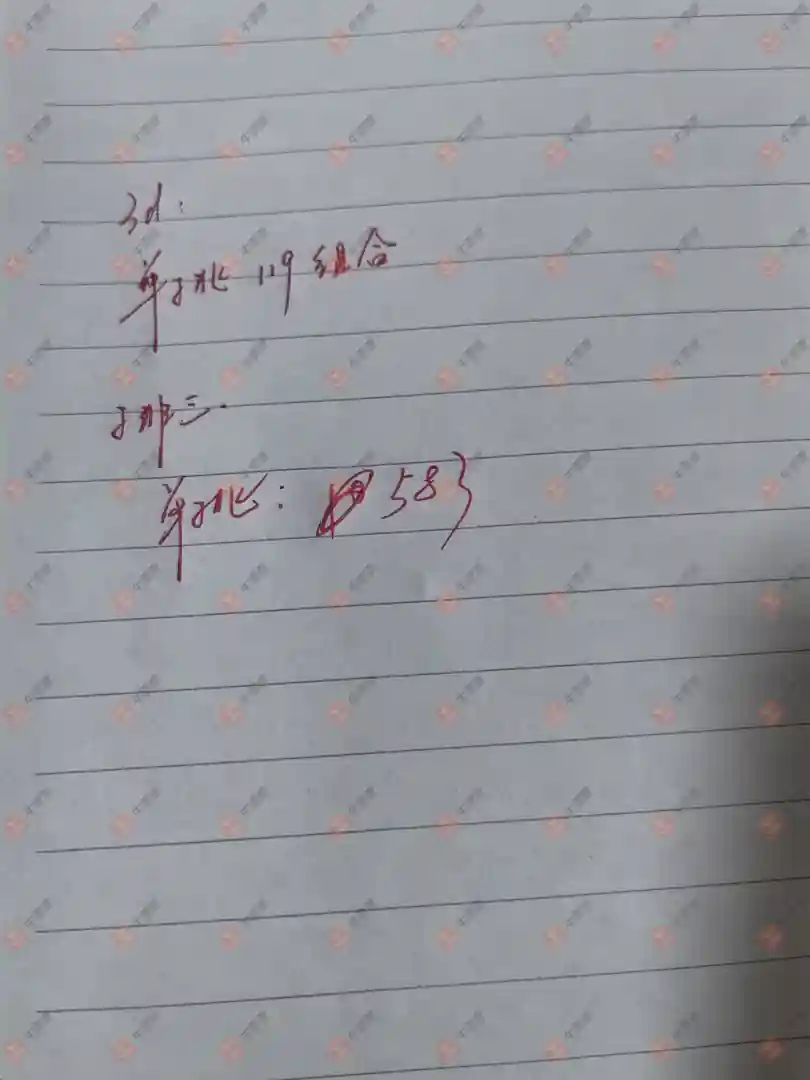 3d:
单挑 119 组合
排三.
单挑: 583